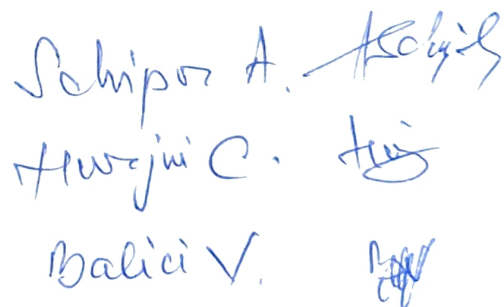 Schipor A.
Hurjui C.
Balici V.